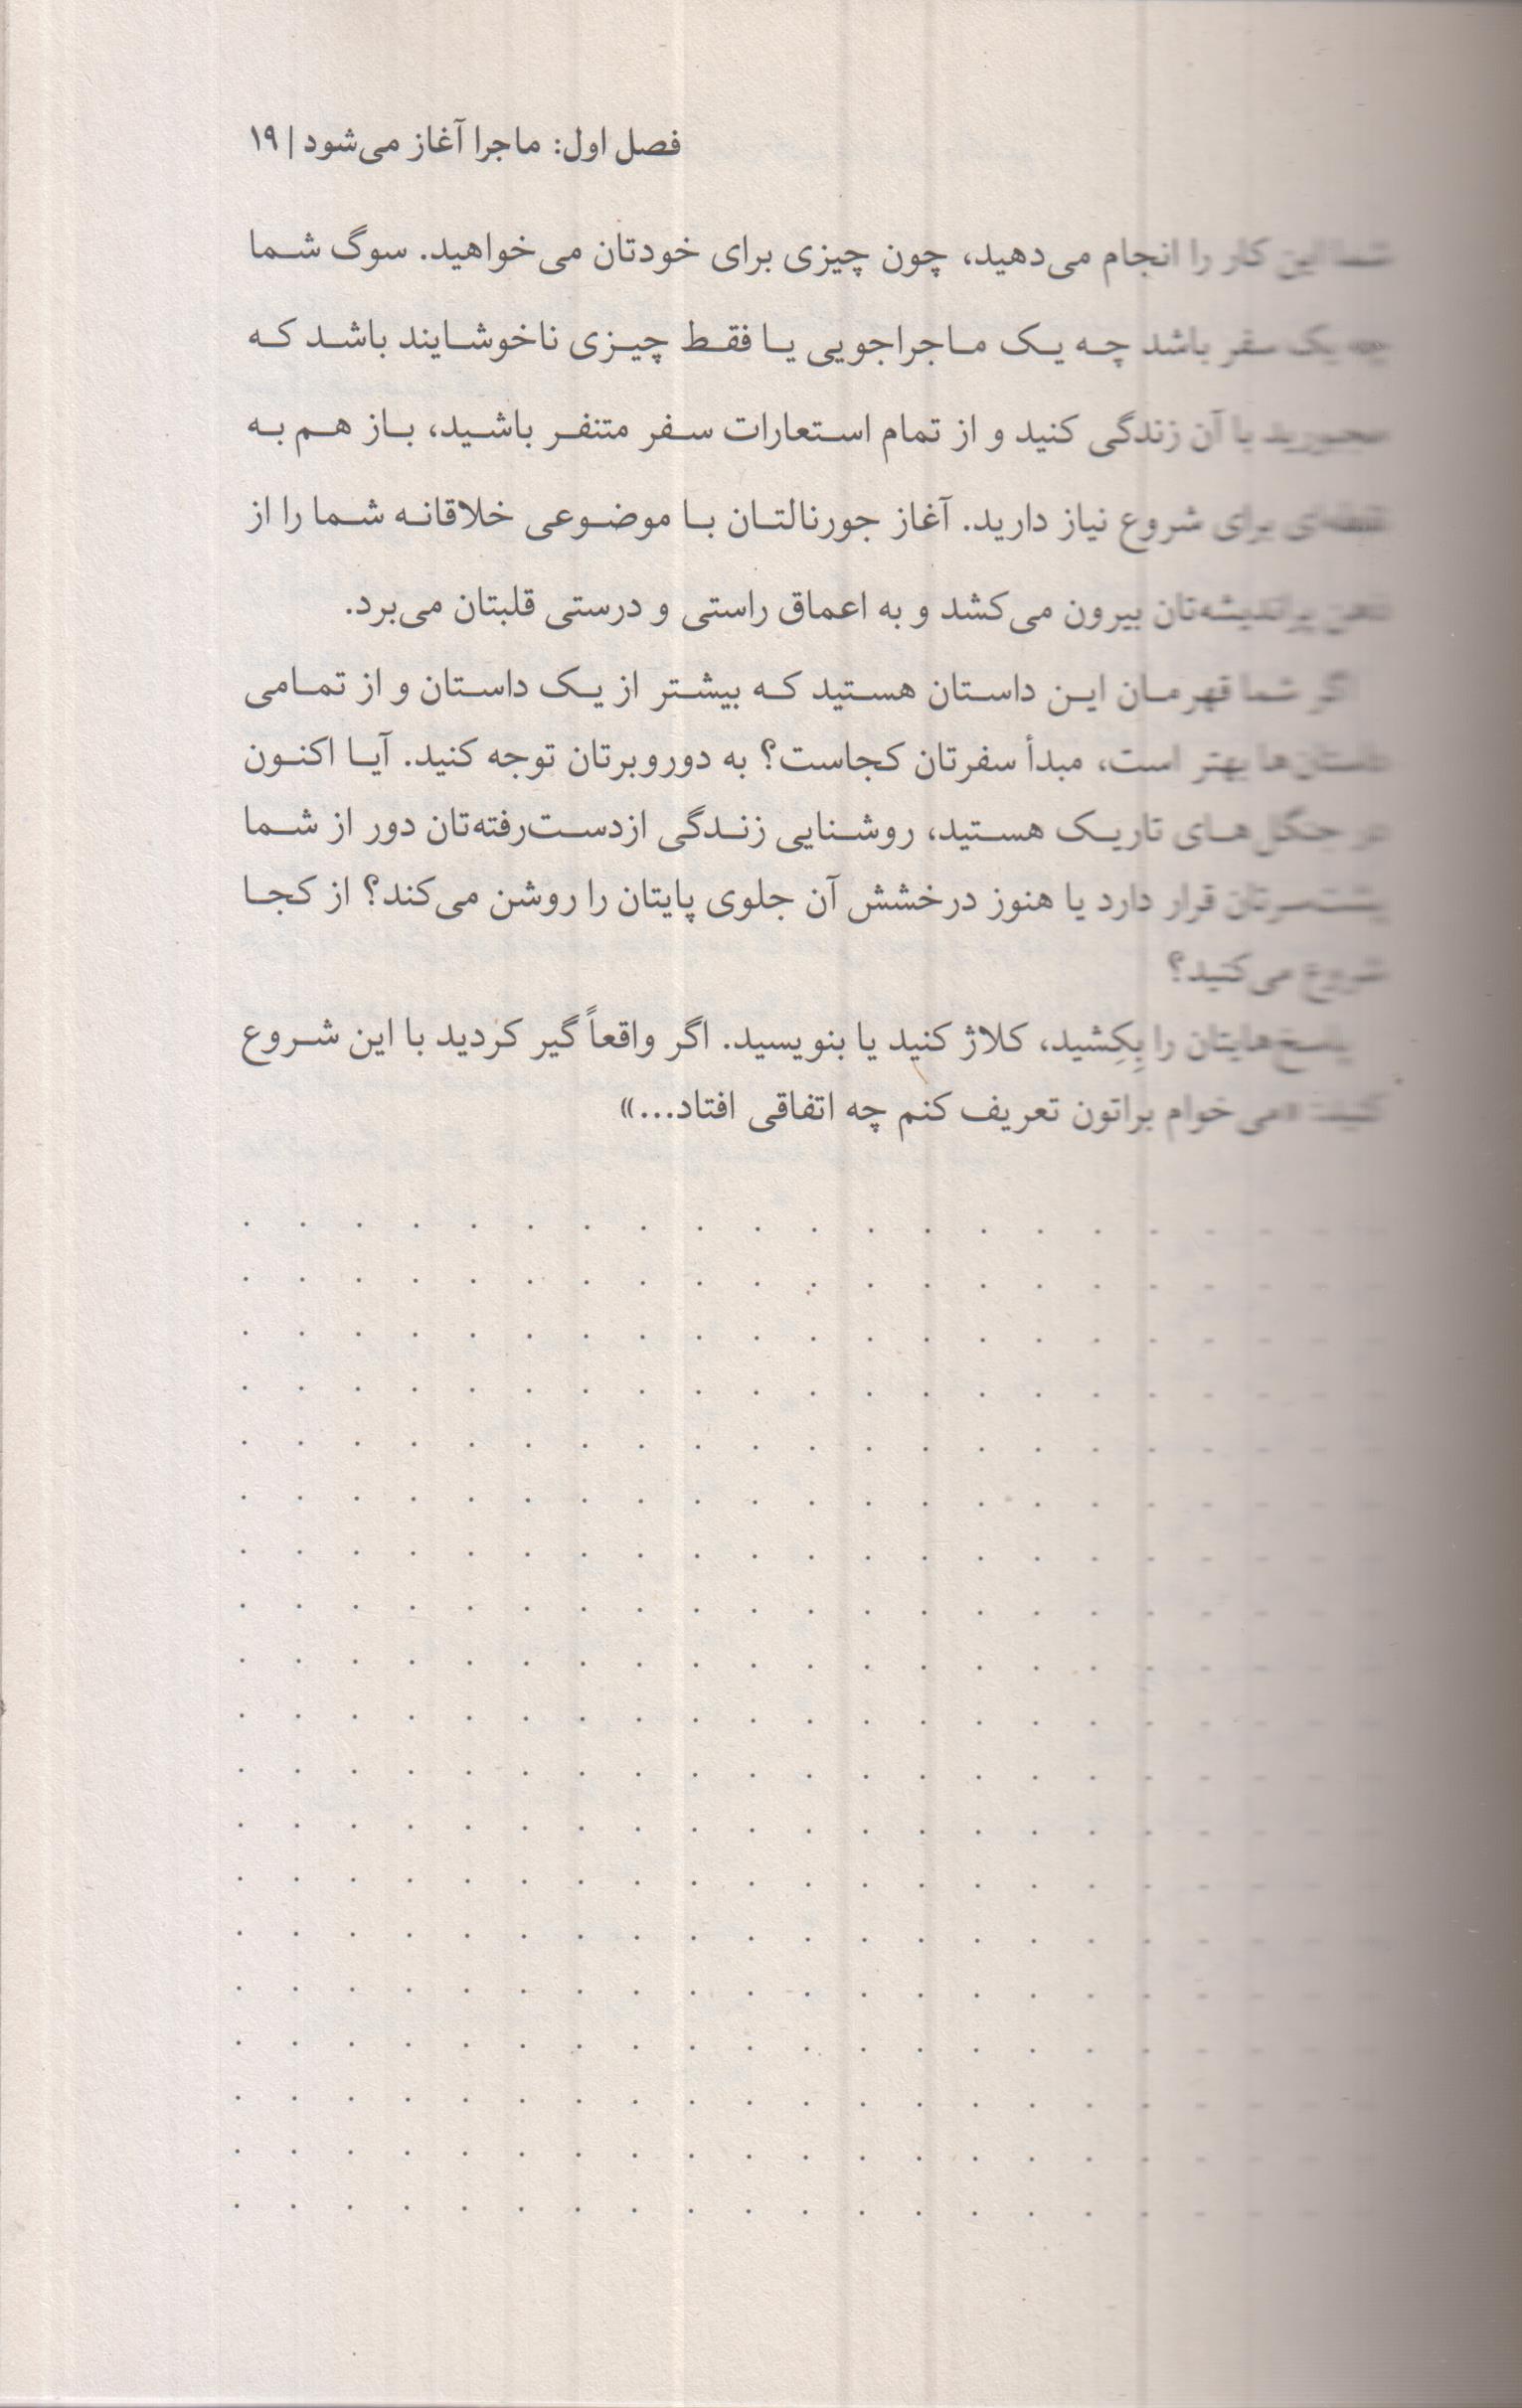 فصل اول: ماجرا آغاز می‌شود | ۱۹
شما این کار را انجام می‌دهید، چون چیزی برای خودتان می‌خواهید. سوگ شما
چه یک سفر باشد چه یک ماجراجویی یا فقط چیزی ناخوشایند باشد که
مجبورید با آن زندگی کنید و از تمام استعارات سفر متنفر باشید، باز هم به
نقطه‌ای برای شروع نیاز دارید. آغاز جورنالتان با موضوعی خلاقانه شما را از
ذهن پراندیشه‌تان بیرون می‌کشد و به اعماق راستی و درستی قلبتان می‌برد.
اگر شما قهرمان این داستان هستید که بیشتر از یک داستان و از تمامی
داستان‌ها بهتر است، مبدأ سفرتان کجاست؟ به دوروبرتان توجه کنید. آیا اکنون
در جنگل‌های تاریک هستید، روشنایی زندگی ازدست‌رفته‌تان دور از شما
پشت‌سرتان قرار دارد یا هنوز درخشش آن جلوی پایتان را روشن می‌کند؟ از کجا
شروع می‌کنید؟
پاسخ‌هایتان را بِکِشید، کلاژ کنید یا بنویسید. اگر واقعاً گیر کردید با این شروع
کنید: «می‌خوام براتون تعریف کنم چه اتفاقی افتاد...»